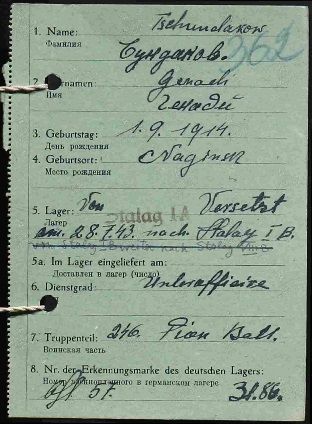 1. Name:
Фамилия
Tschundakow
Чундаков.
362
2. Vornamen:
Имя
Genadi
Генадй
3. Geburtstag: 1.9.1914.
День рождения
4. Geburtsort: Naginsk
Место рождения
5. Lager: Von Stalag IA Versetzt
Лагерь
am. 28.7.43. nach Stalag I B.
5a. Im Lager eingeliefert am:
Доставлен в лагерь (число)
6. Dienstgrad: Unteroffizier
7. Truppenteil: 246. Pion Batl.
Воинская часть
8. Nr. der Erkennungsmarke des deutschen Lagers:
Номер военнопленного в германском лагере
57. 3188.